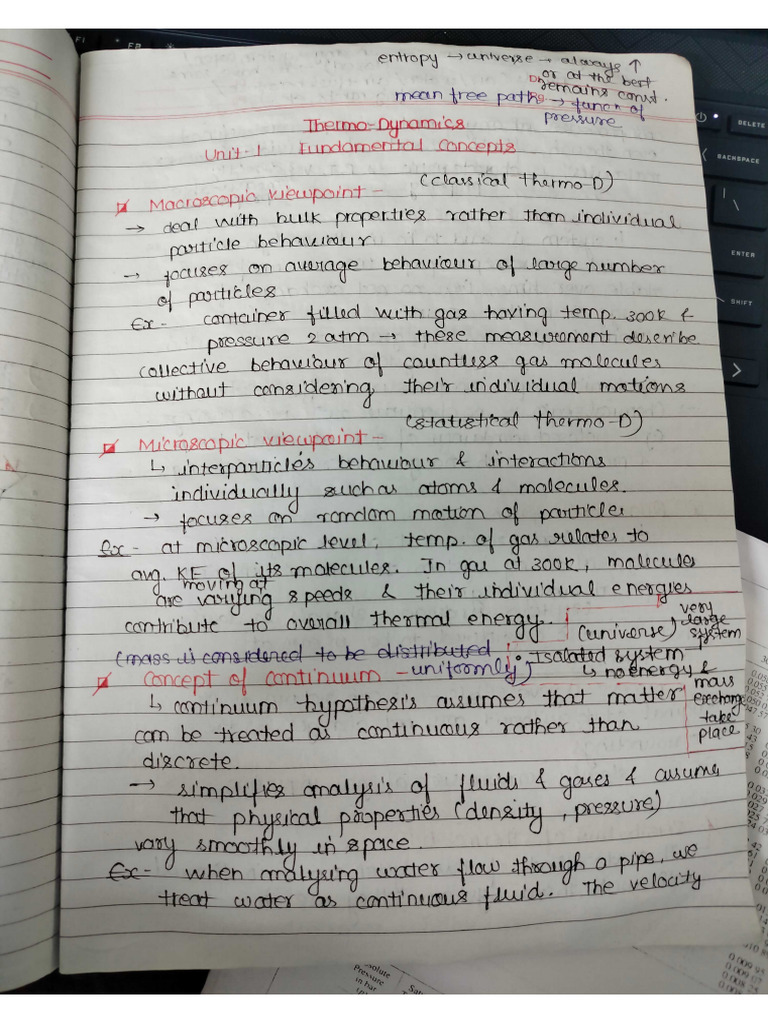 entropy → universe → always ↑
or at the best
remains const.
mean free path → func^n of
pressure
Thermo-Dynamics
Unit-1 Fundamental Concepts
(classical Thermo-D)
Macroscopic viewpoint -
→ deal with bulk properties rather than individual
particle behaviour
→ focuses on average behaviour of large number
of particles
Ex- container filled with gas having temp. 300k &
pressure 2 atm → these measurement describe
collective behaviour of countless gas molecules
without considering their individual motions
(statistical thermo-D)
Microscopic viewpoint -
↳ interparticles behaviour & interactions
individually such as atoms & molecules.
→ focuses on random motion of particles
Ex- at microscopic level, temp. of gas relates to
avg. KE of its molecules. In gas at 300k, molecules
moving at
are varying speeds & their individual energies
contribute to overall thermal energy.
(universe) very large system
(mass is considered to be distributed
uniformly)
• Isolated system
↳ no energy &
mass
exchange
take
place
Concept of continuum -
↳ continuum hypothesis assumes that matter
can be treated as continuous rather than
discrete.
→ simplifies analysis of fluids & gases & assume
that physical properties (density, pressure)
vary smoothly in space.
Ex- when analysing water flow through a pipe, we
treat water as continuous fluid. The velocity
F8
DELETE
BACKSPACE
ENTER
SHIFT
Absolute
Pressure
in bar
0.009 95
0.009 07
0.008 25